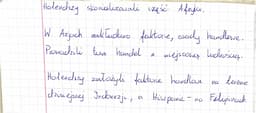 Holendrzy skolonizowali część Afryki.
W Azjach zakładano faktorie, osady handlowe.
Prowadzili tam handel z miejscową ludnością.
Holendrzy założyli faktorie handlowe na terenie
dzisiejszej Indonezji, a Hiszpanie - na Filipinach